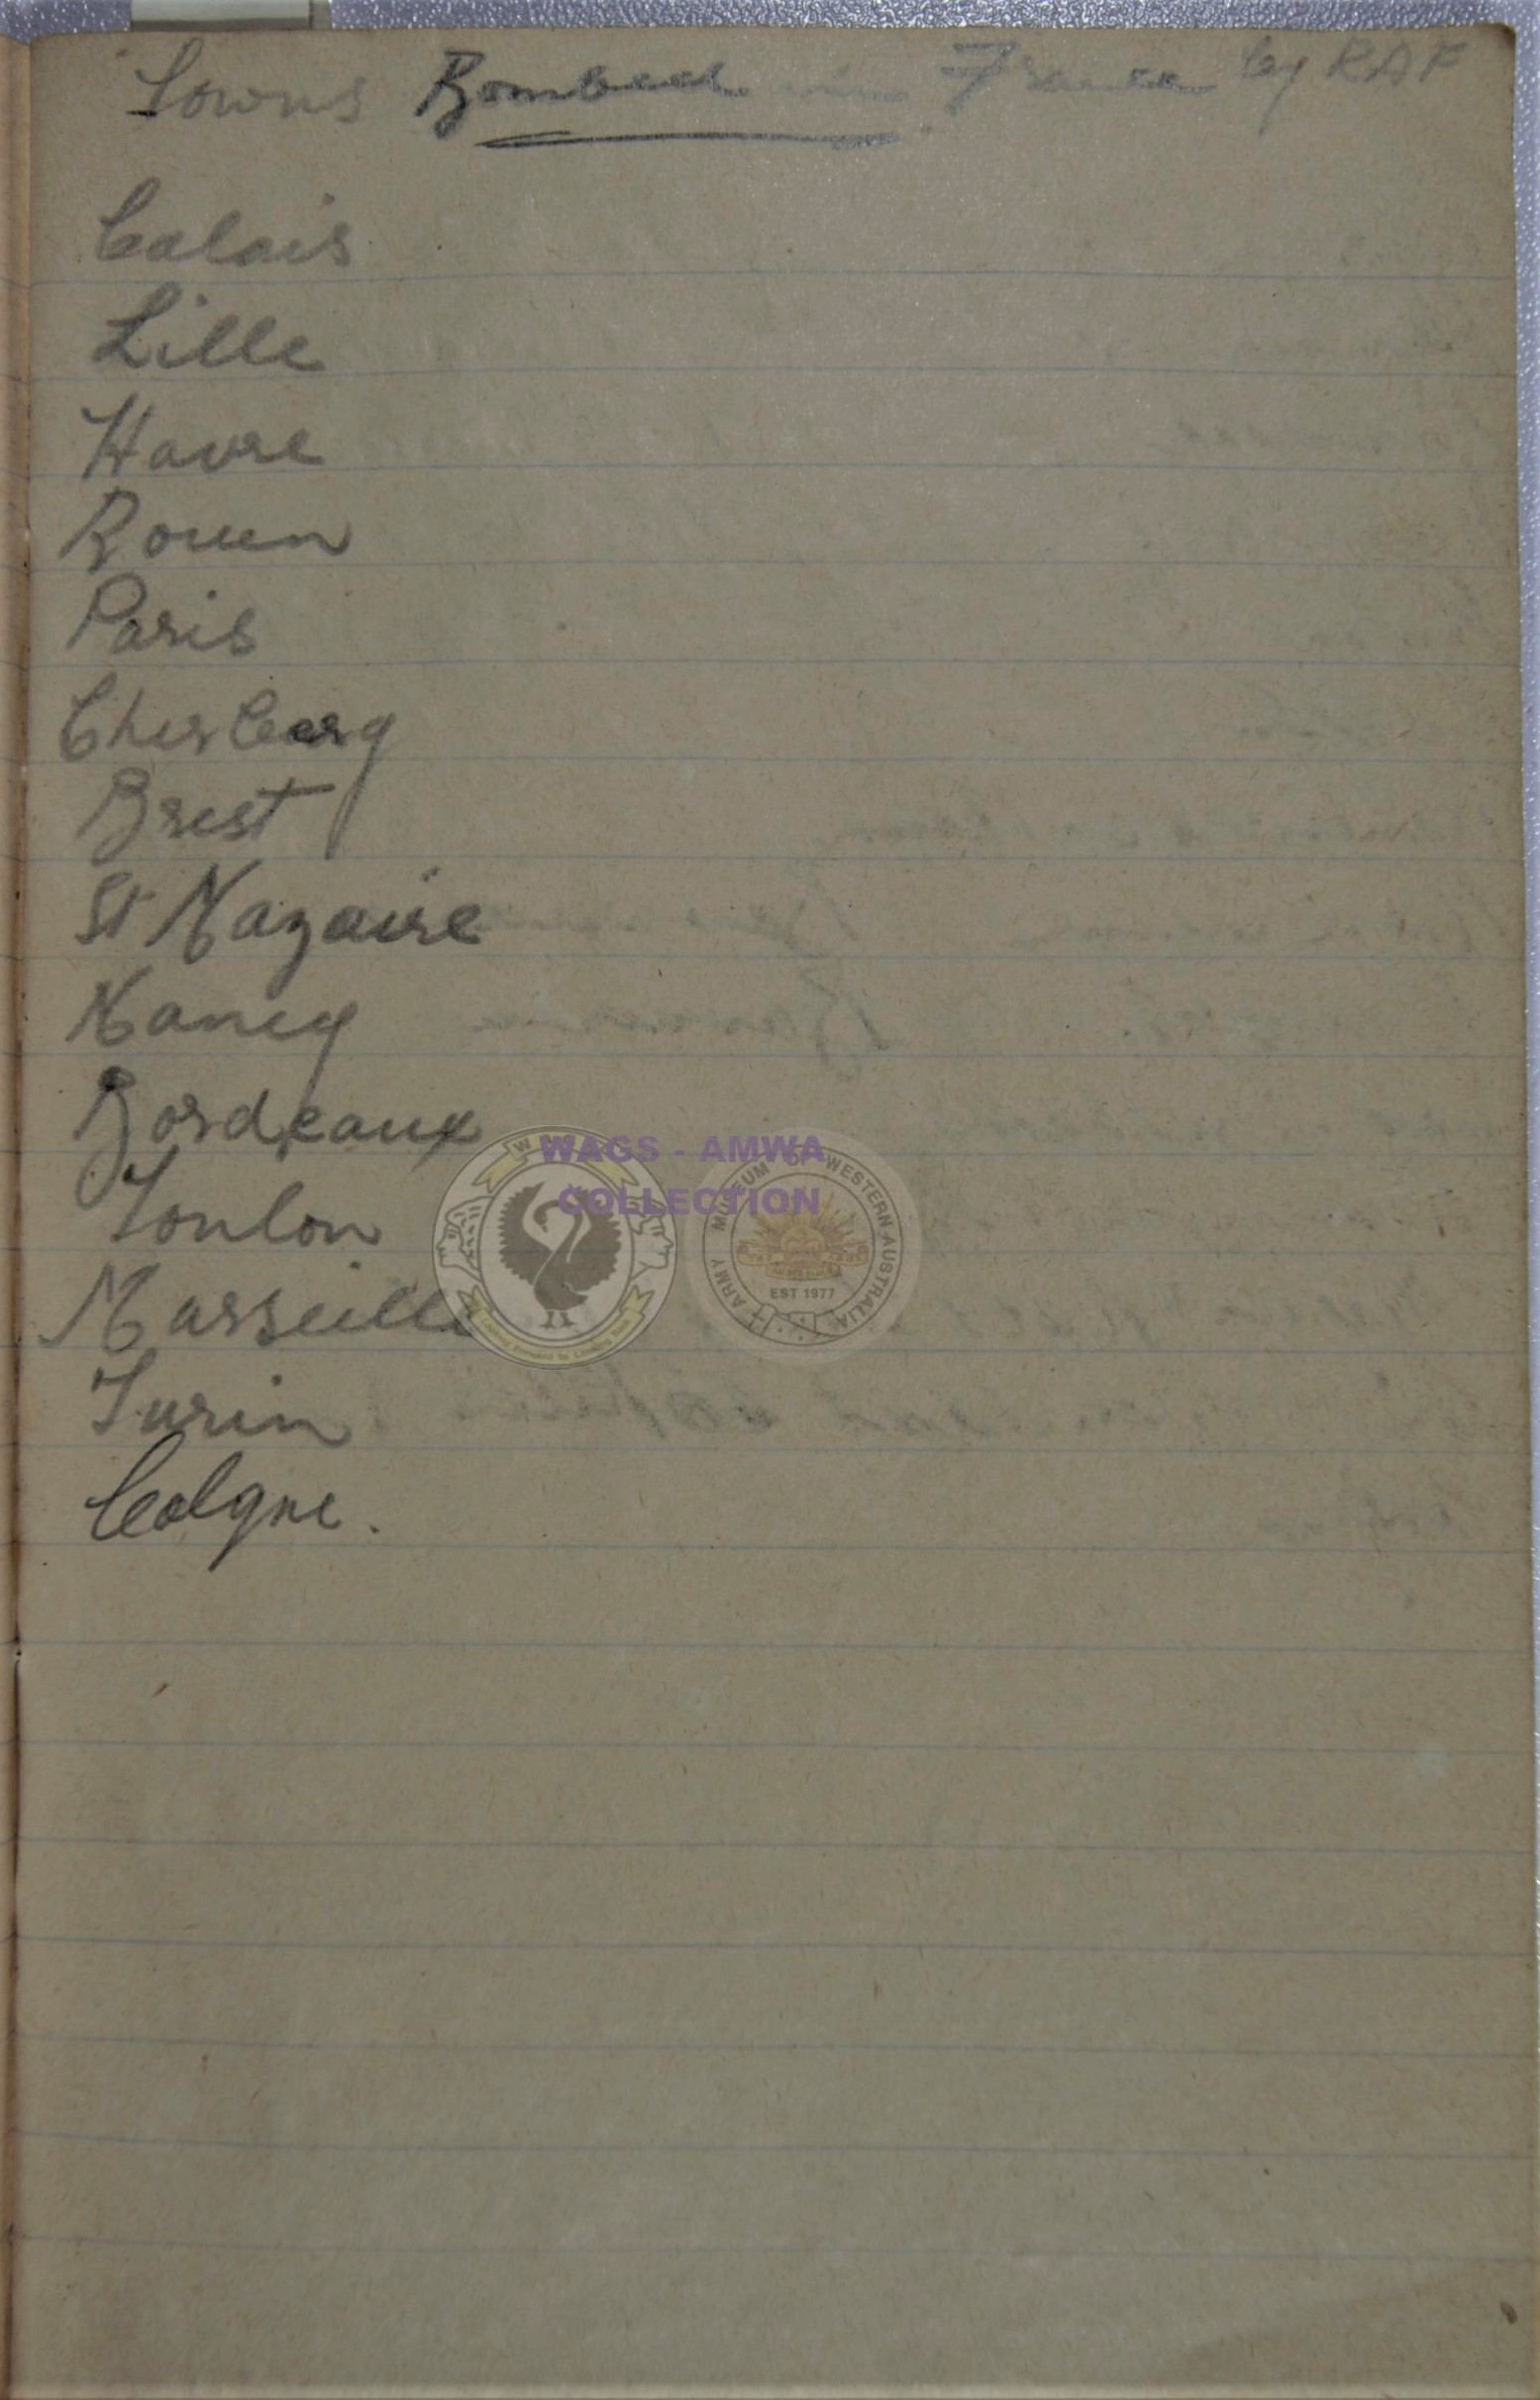 Towns Bombed in France by RAF
Calais
Lille
Havre
Rouen
Paris
Cherburg
Brest
St Nazaire
Nancy
Bordeaux
Toulon
Marseille
Turin
Colgne.
WAGS - AMWA
COLLECTION
ARMY MUSEUM OF WESTERN AUSTRALIA
EST 1977